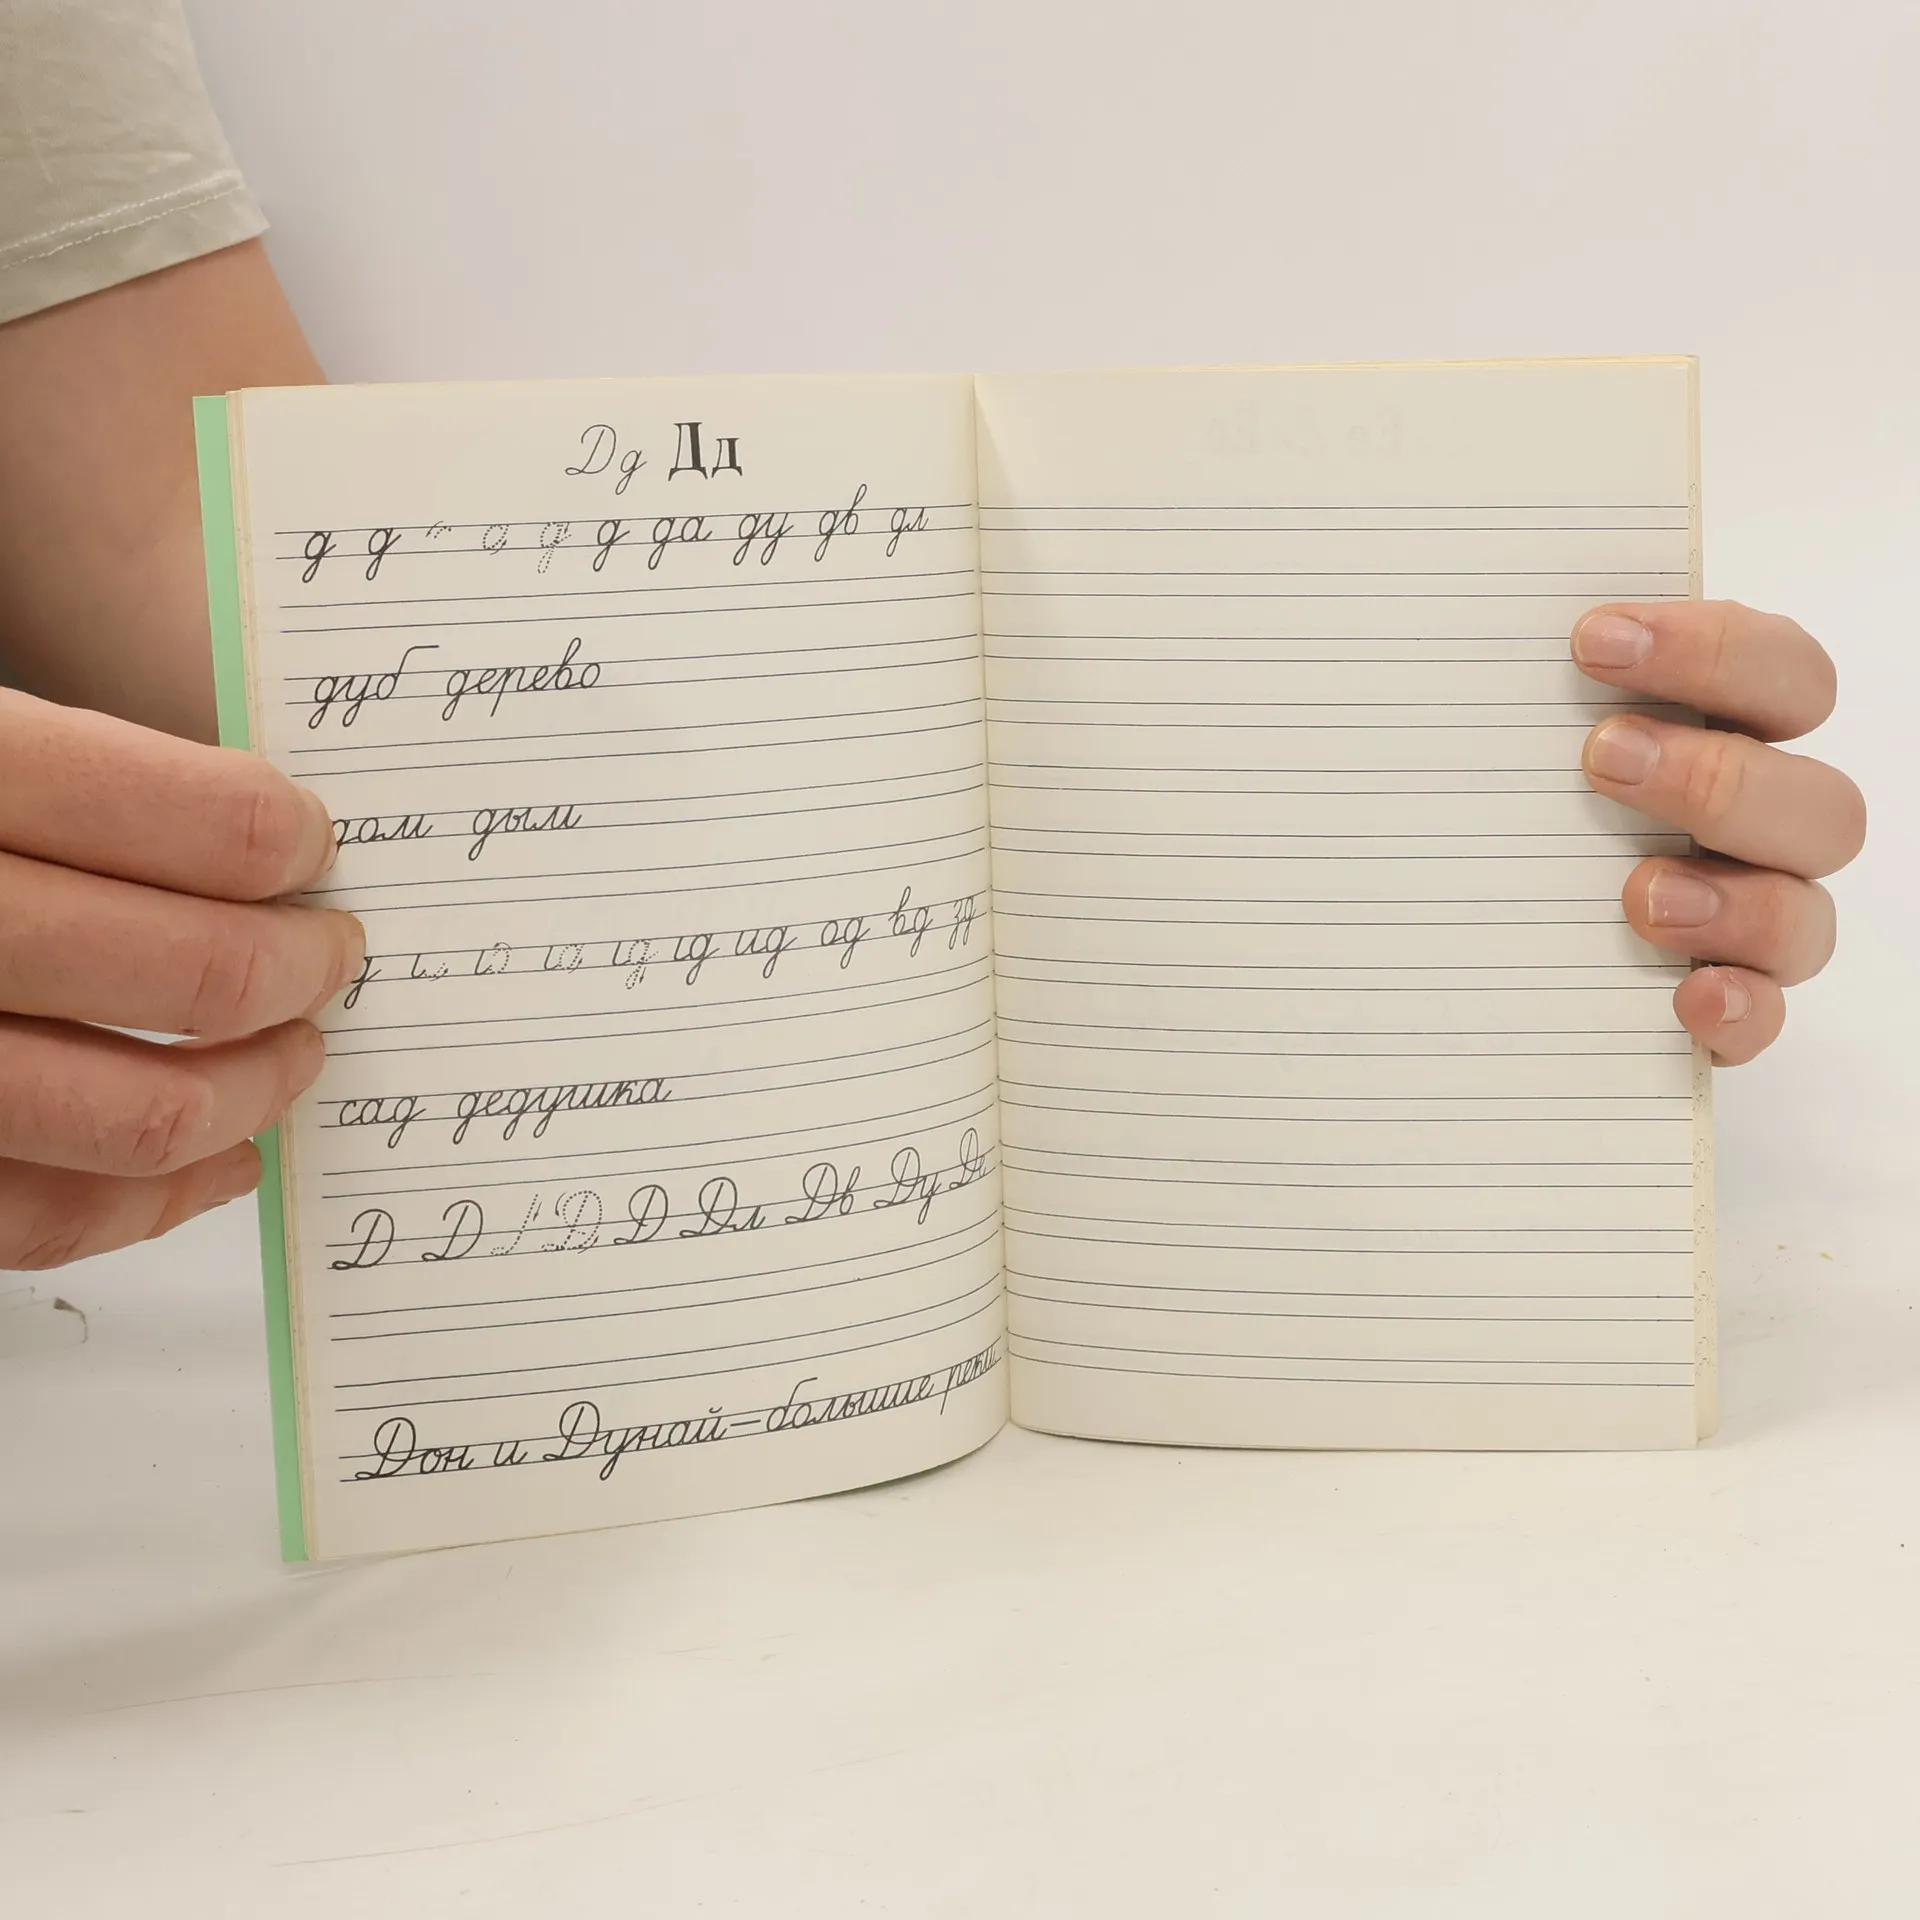 Дд Дд
д д д д да ду дв дл
дуб дерево
дом дым
д ıд ид од вд зд
сад дедушка
Д Д Д Д Дл Дв Ду Де
Дон и Дунай – большие реки.